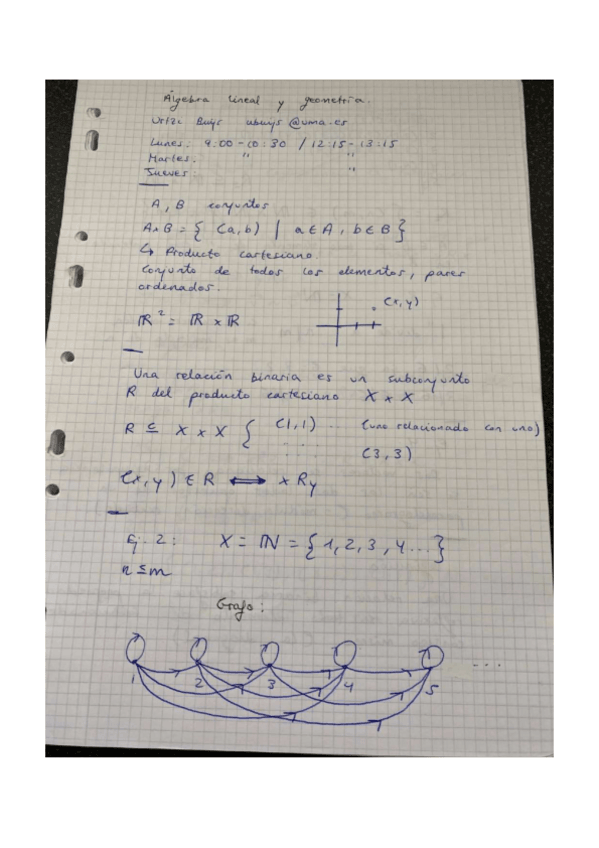 Álgebra lineal y geometría.
Urtzi Buijs ubuijs@uma.es
Lunes: 9:00-10:30 / 12:15-13:15
Martes: " "
Jueves: "
A, B conjuntos
A×B = { (a,b) | a ∈ A, b ∈ B }
↳ Producto cartesiano.
Conjunto de todos los elementos, pares
ordenados.
ℝ² = ℝ × ℝ (x,y)
Una relación binaria es un subconjunto
R del producto cartesiano X × X
R ⊆ X × X { (1,1) ... (uno relacionado con uno)
(3,3)
(x,y) ∈ R ⟺ x R y
Ej 2: X = ℕ = {1,2,3,4...}
n ≤ m
Grafo:
1 2 3 4 5 ...